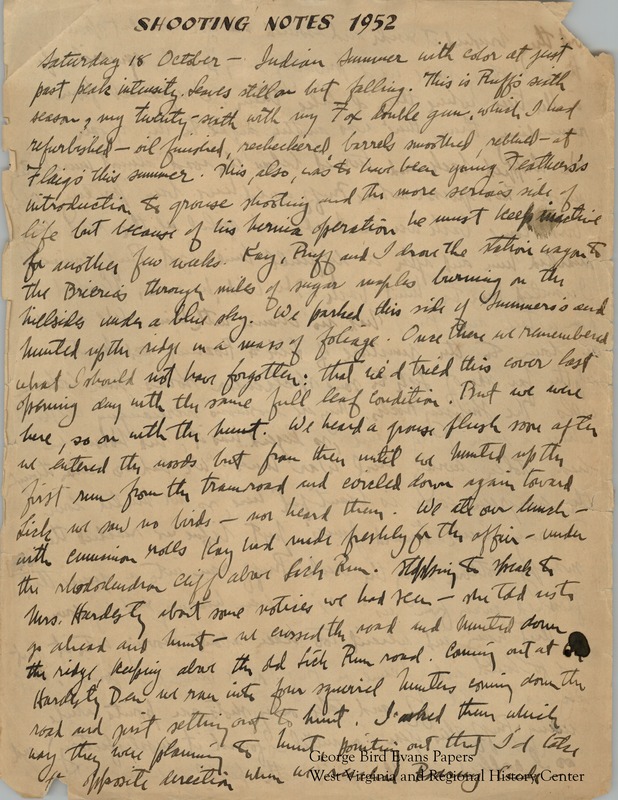 SHOOTING NOTES 1952
Saturday 18 October - Indian Summer with color at just
past peak intensity. Leaves still on but falling. This is Ruff's sixth
season & my twenty-sixth with my Fox double gun, which I had
refurbished - oil finished, recheckered, barrels smoothed, reblued - at
Flaig's this summer. This, also, was to have been young Feathers's
introduction to grouse shooting and the more serious side of
life but because of his hernia operation he must keep inactive
for another few weeks. Kay, Ruff and I drove the station wagon to
the Brieries through miles of sugar maples burning on the
hillsides under a blue sky. We parked this side of Summers's and
hunted up the ridge in a mass of foliage. Once there we remembered
what I should not have forgotten: that we'd tried this cover last
opening day with the same full leaf condition. But we were
here, so on with the hunt. We heard a grouse flush soon after
we entered the woods but from then until we hunted up the
first run from the tramroad and circled down again toward
Lick we saw no birds - nor heard them. We ate our lunch -
with cinnamon rolls Kay had made freshly for the affair - under
the rhododendron cliff above Lick Run. Stopping to speak to
Mrs. Hardesty about some notices we had seen - she told us to
go ahead and hunt - we crossed the road and hunted down
the ridge, keeping above the old Lick Run road. Coming out at
Hardesty Den we ran into four squirrel hunters coming down the
road and just setting out to hunt. I asked them which
way they were planning to hunt pointing out that I'd take
opposite direction when we
George Bird Evans Papers
West Virginia and Regional History Center